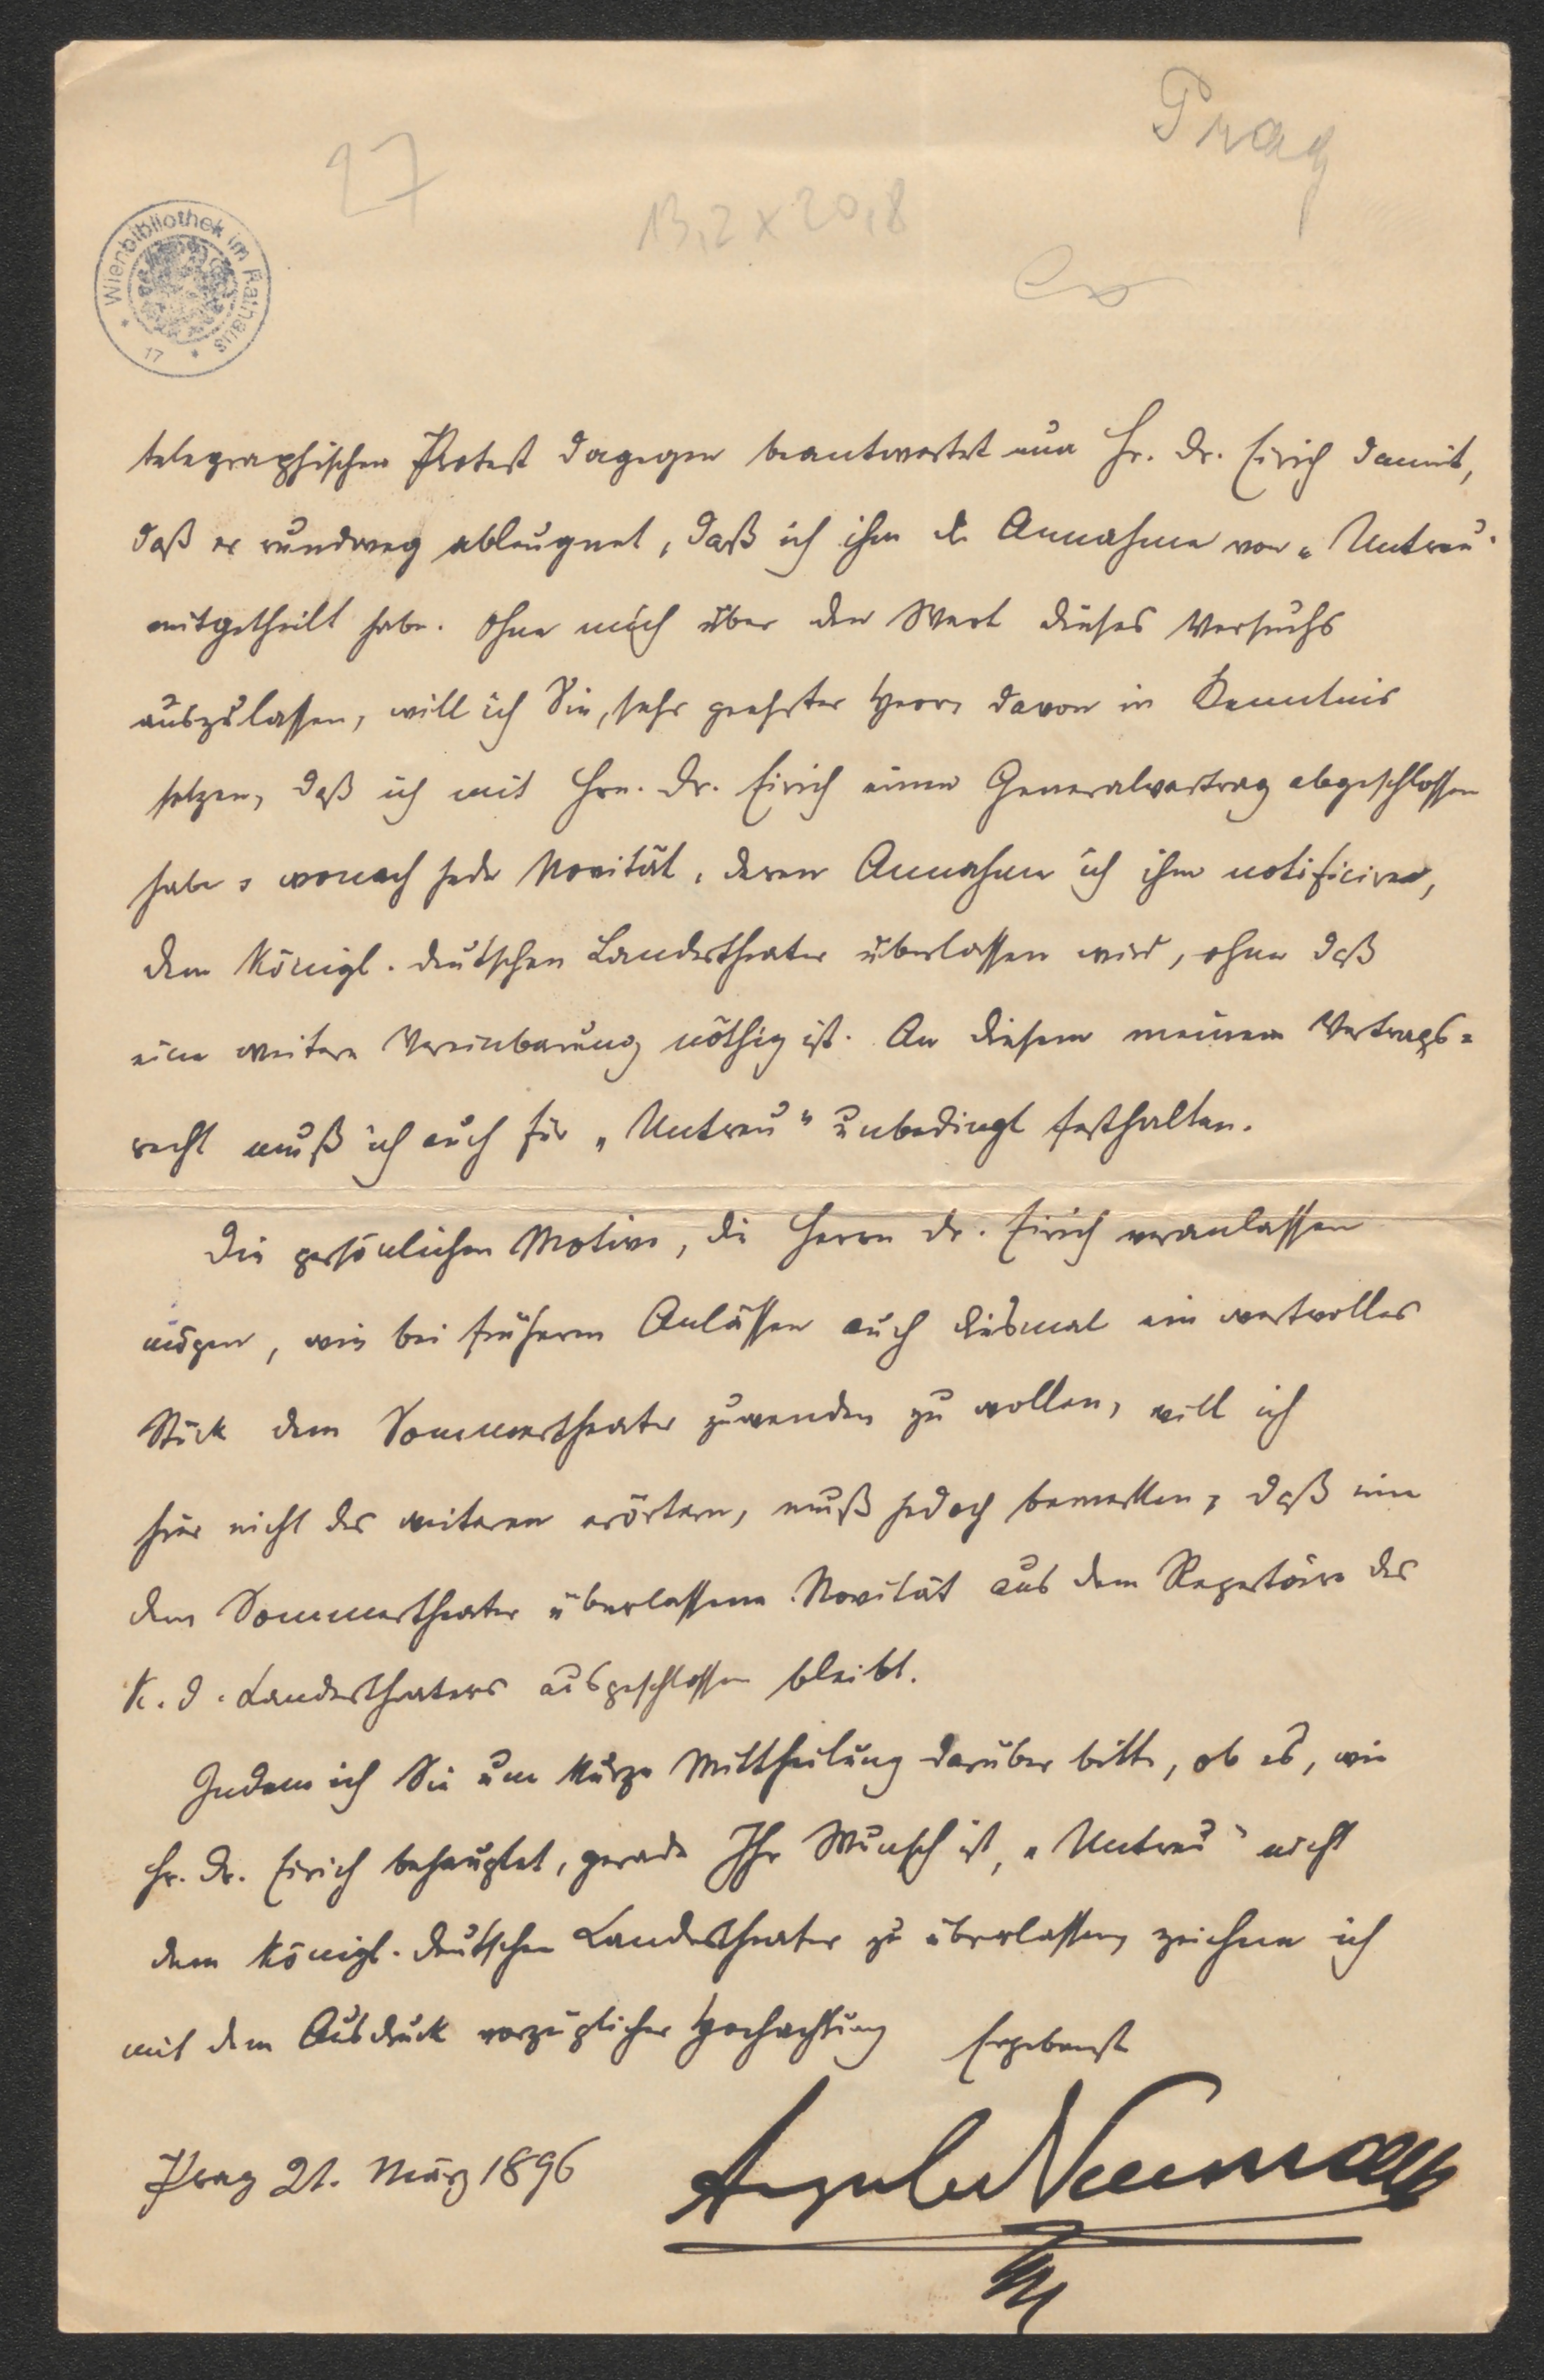 Prag
27
13,2 x 20,8
Wienbibliothek im Rathaus
* 17 *
telegraphischen Protest dagegen beantwortet nun Hr. Dr. Eirich damit,
daß er rundweg ableugnet, daß ich ihm die Annahme von „Untreu“
mitgetheilt habe. Ohne mich über den Wert dieses Versuchs
auszulassen, will ich Sie, sehr geehrter Herr, davon in Kenntnis
setzen, daß ich mit Hrn. Dr. Eirich einen Generalvertrag abgeschlossen
habe, wonach jede Novität, deren Annahme ich ihm notificire,
dem Königl. deutschen Landestheater überlassen wird, ohne daß
eine weitere Vereinbarung nöthig ist. An diesem meinem Vertrags=
recht muß ich auch für „Untreu“ unbedingt festhalten.
Die persönlichen Motive, die Herrn Dr. Eirich veranlassen
mögen, wie bei früheren Anlässen auch diesmal ein wertvolles
Stück dem Sommertheater zuwenden zu wollen, will ich
hier nicht des weiteren erörtern, muß jedoch bemerken, daß eine
dem Sommertheater überlassene Novität aus dem Repertoire des
K. d. Landestheaters ausgeschlossen bleibt.
Indem ich Sie um kurze Mittheilung darüber bitte, ob es, wie
Hr. Dr. Eirich behauptet, gerade Ihr Wunsch ist, „Untreu“ nicht
dem Königl. deutschen Landestheater zu überlassen, zeichne ich
mit dem Ausdruck vorzüglicher Hochachtung Ergebenst
Prag 21. März 1896 Angelo Neumann